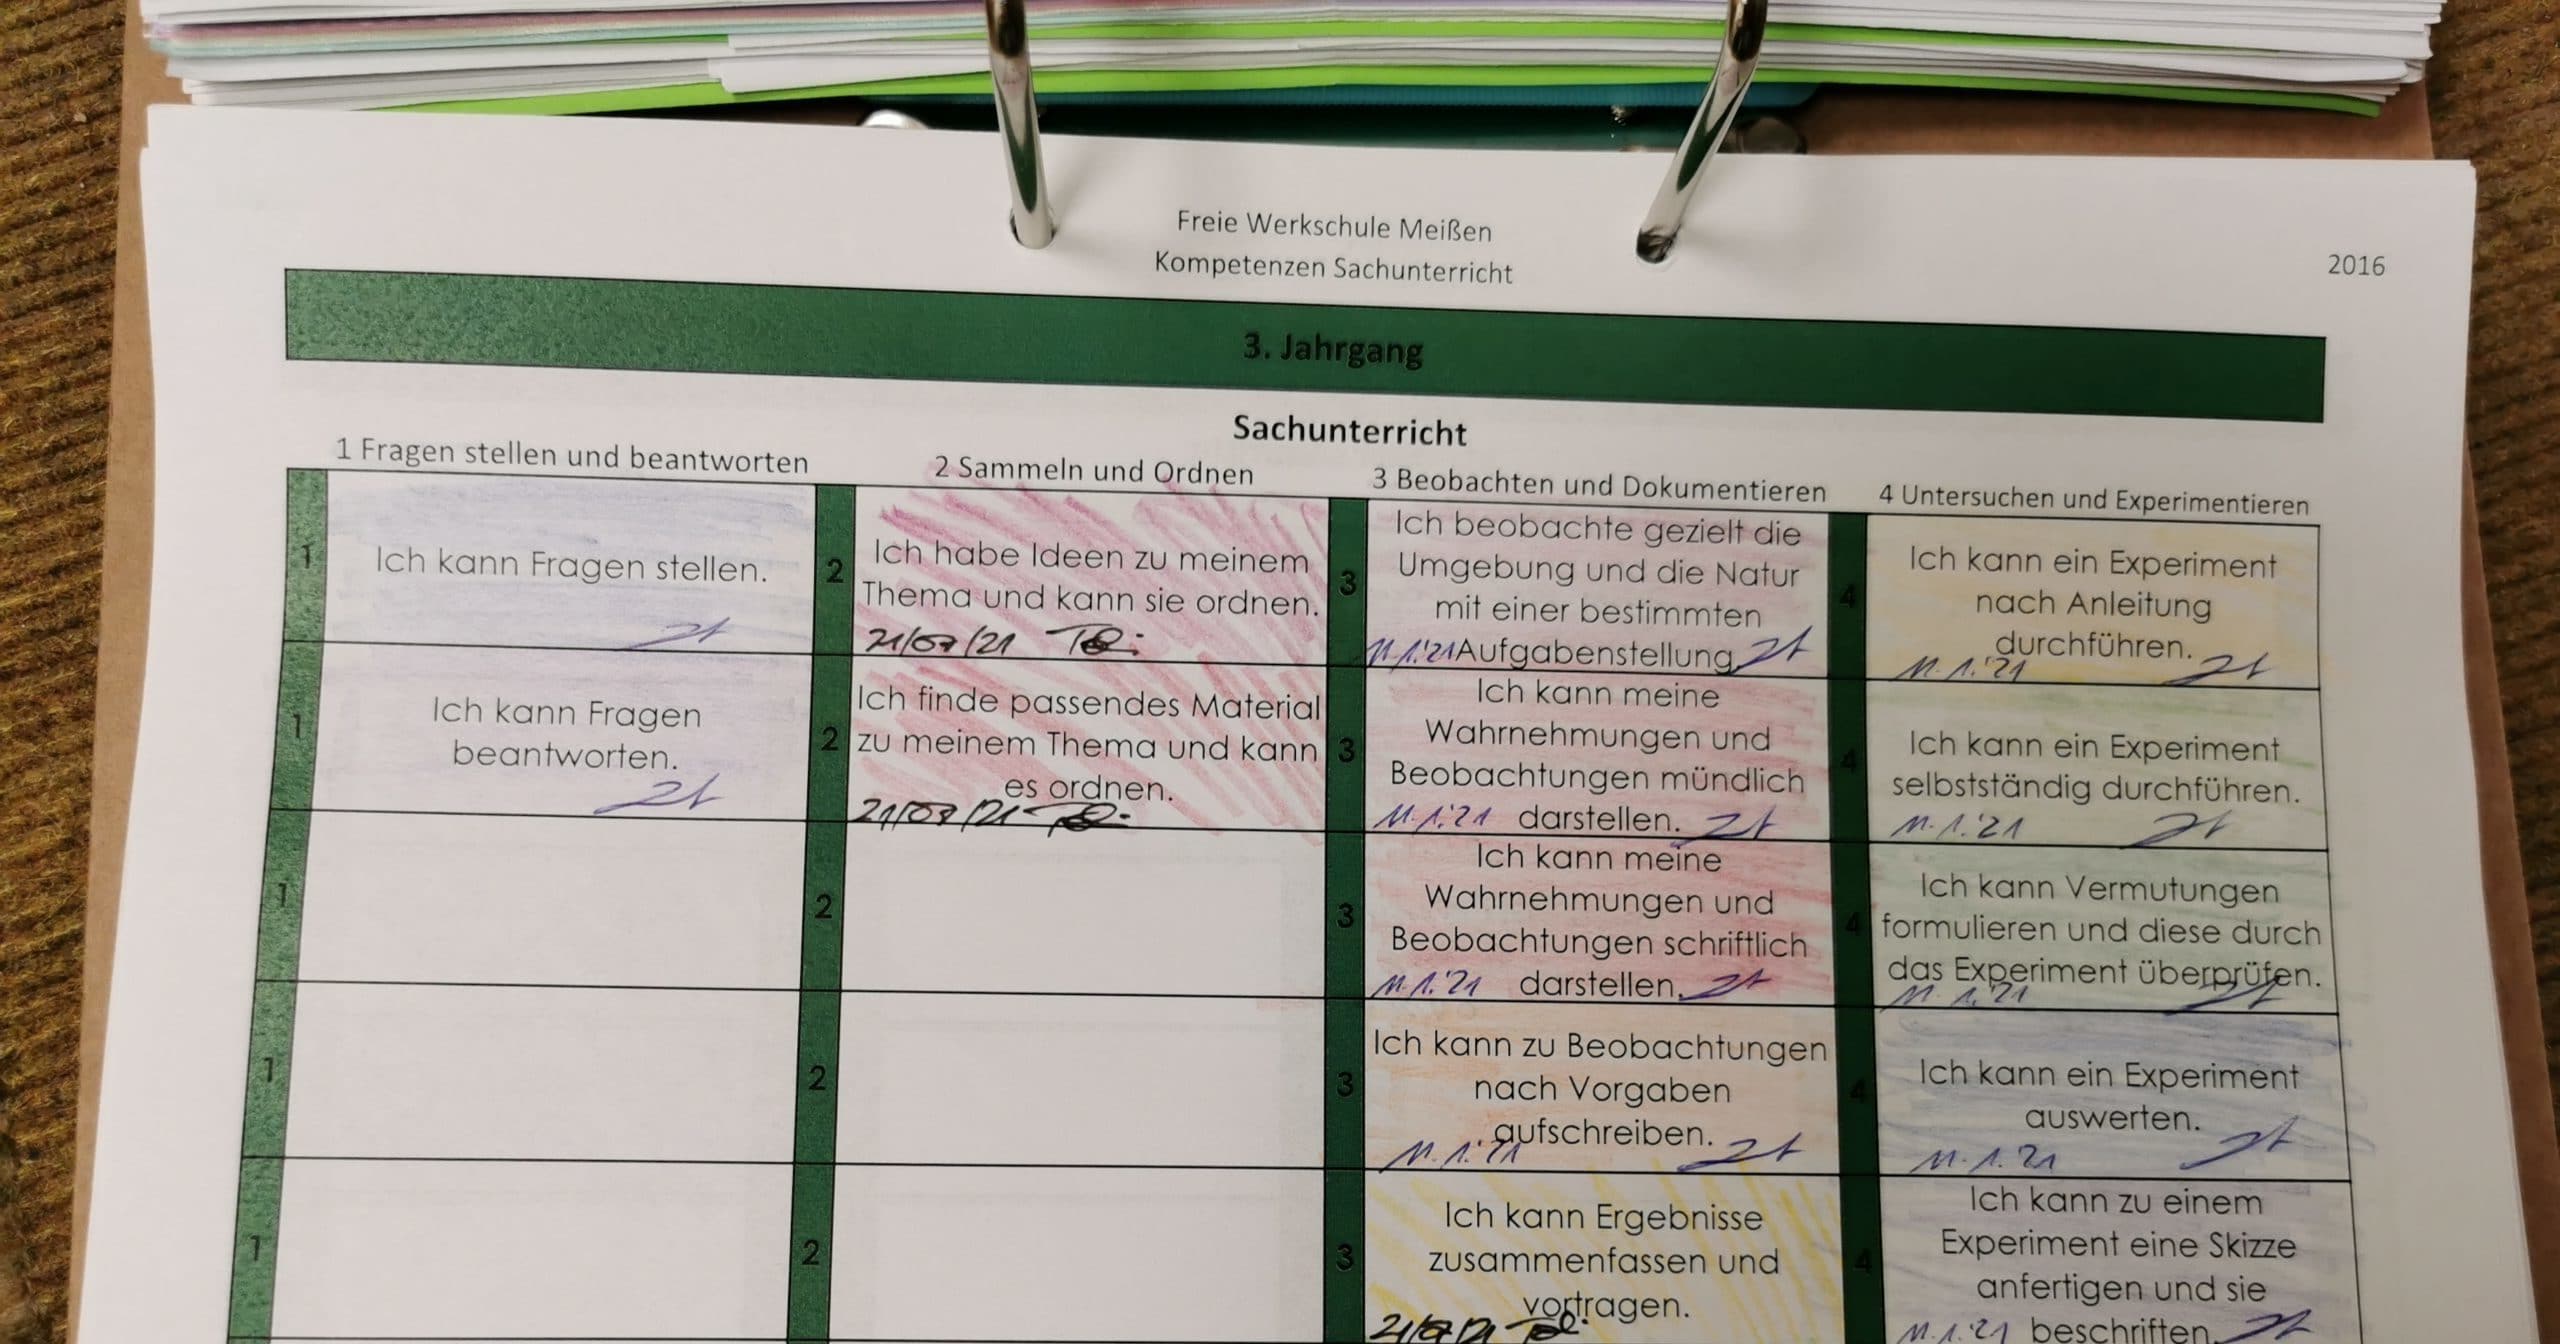 Freie Werkschule Meißen
Kompetenzen Sachunterricht
2016
3. Jahrgang
Sachunterricht
1 Fragen stellen und beantworten
1
Ich kann Fragen stellen.
1
Ich kann Fragen
beantworten.
1
1
1
2 Sammeln und Ordnen
2
Ich habe Ideen zu meinem
Thema und kann sie ordnen.
21/07/21
2
Ich finde passendes Material
zu meinem Thema und kann
es ordnen.
21/07/21
2
2
2
3 Beobachten und Dokumentieren
3
Ich beobachte gezielt die
Umgebung und die Natur
mit einer bestimmten
11.1.'21 Aufgabenstellung
3
Ich kann meine
Wahrnehmungen und
Beobachtungen mündlich
11.1.'21 darstellen.
3
Ich kann meine
Wahrnehmungen und
Beobachtungen schriftlich
11.1.'21 darstellen.
3
Ich kann zu Beobachtungen
nach Vorgaben
aufschreiben.
11.1.'21
3
Ich kann Ergebnisse
zusammenfassen und
vortragen.
21/07/21
4 Untersuchen und Experimentieren
4
Ich kann ein Experiment
nach Anleitung
durchführen.
11.1.'21
4
Ich kann ein Experiment
selbstständig durchführen.
11.1.'21
4
Ich kann Vermutungen
formulieren und diese durch
das Experiment überprüfen.
11.1.'21
4
Ich kann ein Experiment
auswerten.
11.1.'21
4
Ich kann zu einem
Experiment eine Skizze
anfertigen und sie
11.1.'21 beschriften.